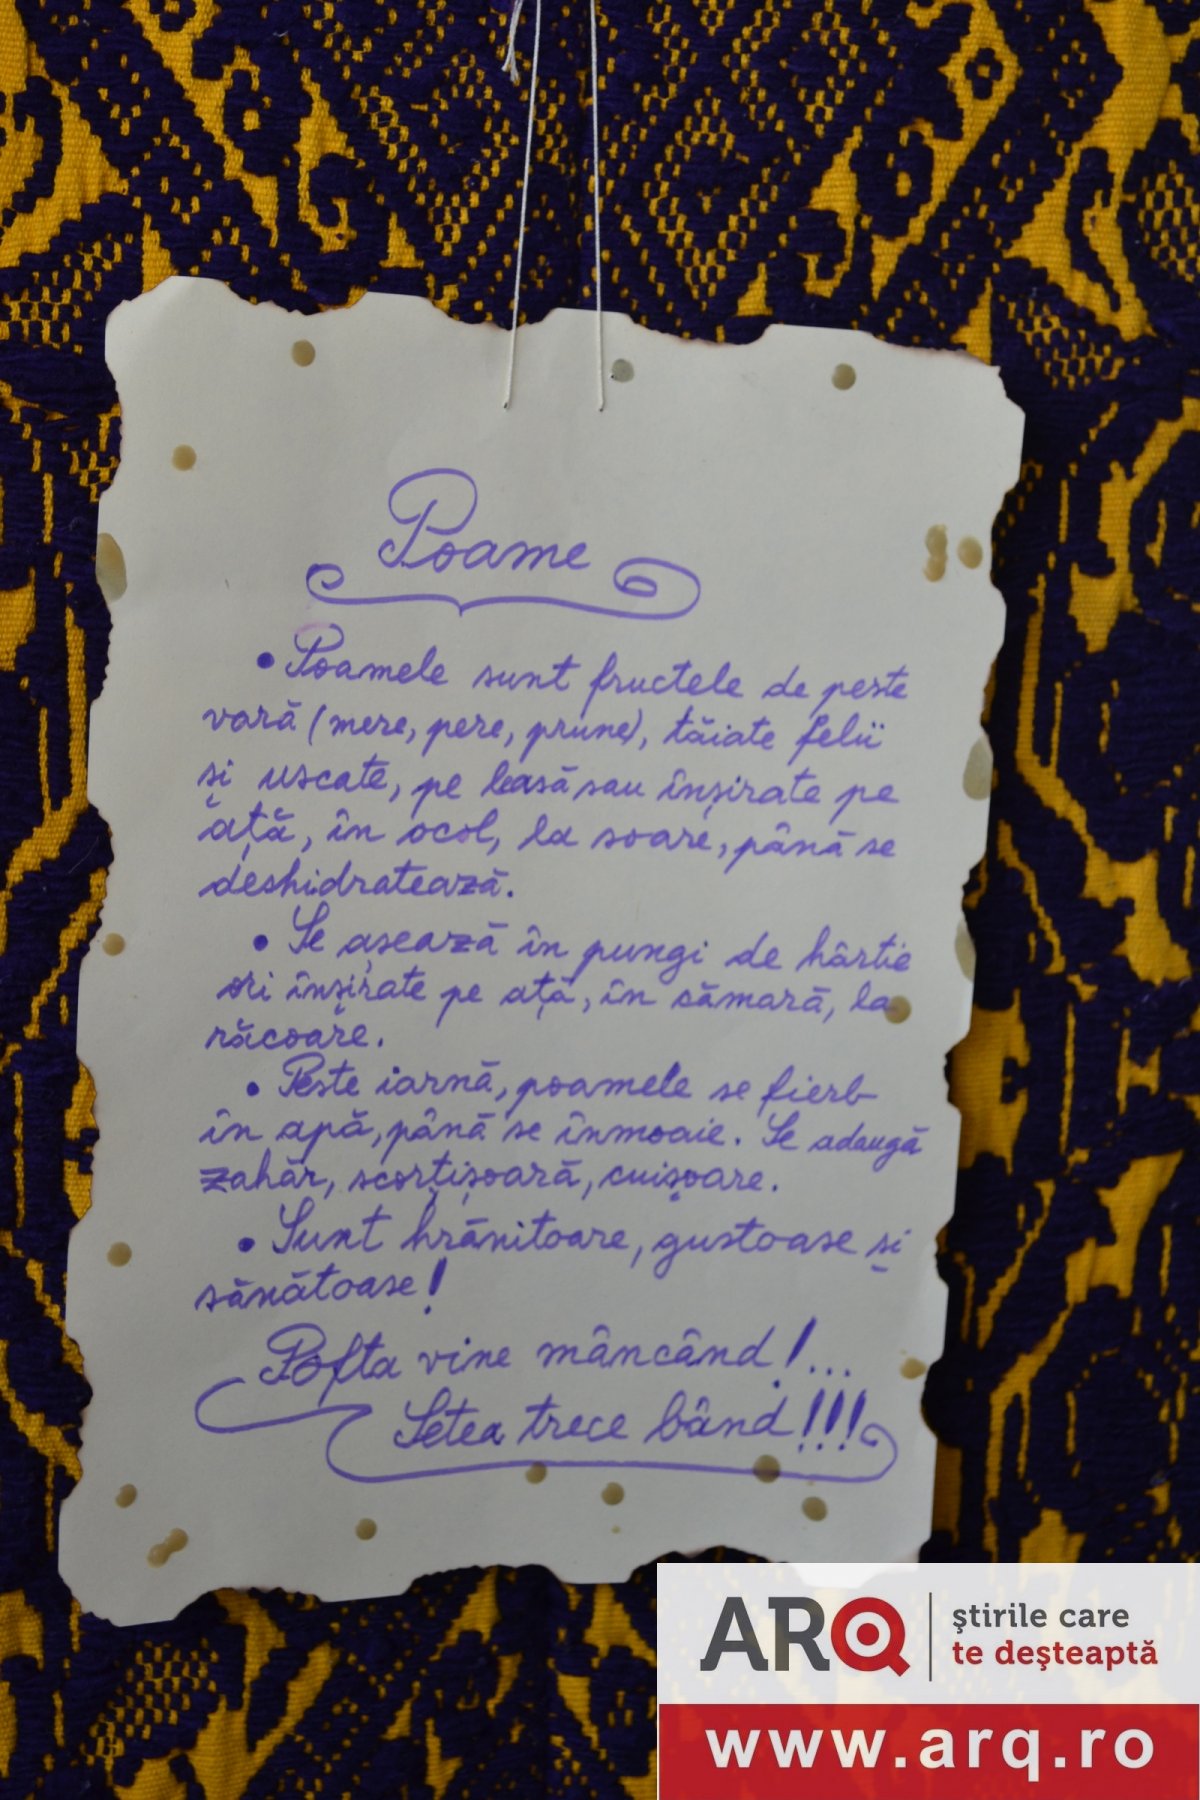 Poame
• Poamele sunt fructele de peste
vară (mere, pere, prune), tăiate felii
și uscate, pe leasă sau înșirate pe
ață, în ocol, la soare, până se
deshidratează.
• Se așează în pungi de hârtie
ori înșirate pe ață, în cămară, la
răcoare.
• Peste iarnă, poamele se fierb
în apă, până se înmoaie. Se adaugă
zahăr, scorțișoară, cuișoare.
• Sunt hrănitoare, gustoase și
sănătoase!
Pofta vine mâncând!...
Setea trece bând!!!
ARQ
ştirile care
te deşteaptă
www.arq.ro